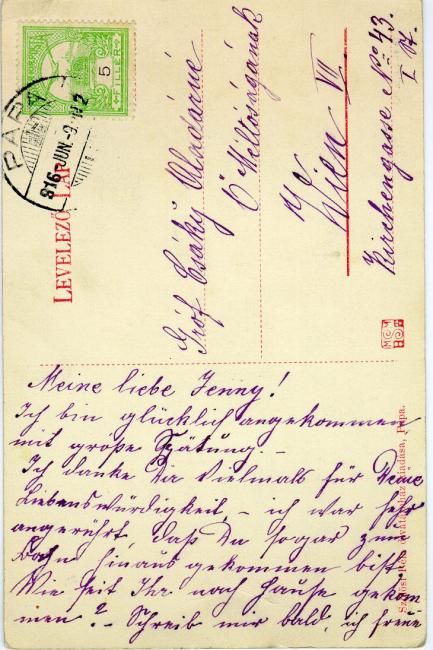 MAGYAR KIR. POSTA
5
FILLER
PÁPA
916 JUN.-9. N 2
LEVELEZŐ-LAP
Gróf Csáky Vladárné
Ő Méltóságának
Wien VII
Kirchengasse No 43.
I St.
Meine liebe Jenny!
Ich bin glücklich angekommen
mit große Spätung. –
Ich danke Dir vielmals für Deine
Liebenswürdigkeit, – ich war sehr
angerührt, daß Du sogar zum
Bahn hinaus gekommen bist
Wie seit Ihr nach Hause gekom-
men? – Schreib mir bald, ich freue
kiadása, Pápa.